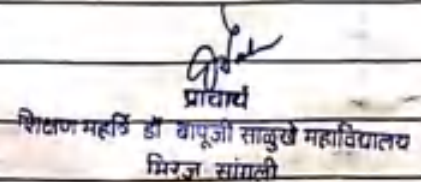 प्राचार्य
शिक्षण महर्षि डॉ बापूजी साळुंखे महाविद्यालय
मिरज सांगली